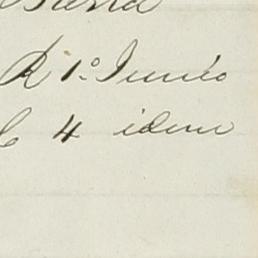 R 1º Junio
C 4 idem